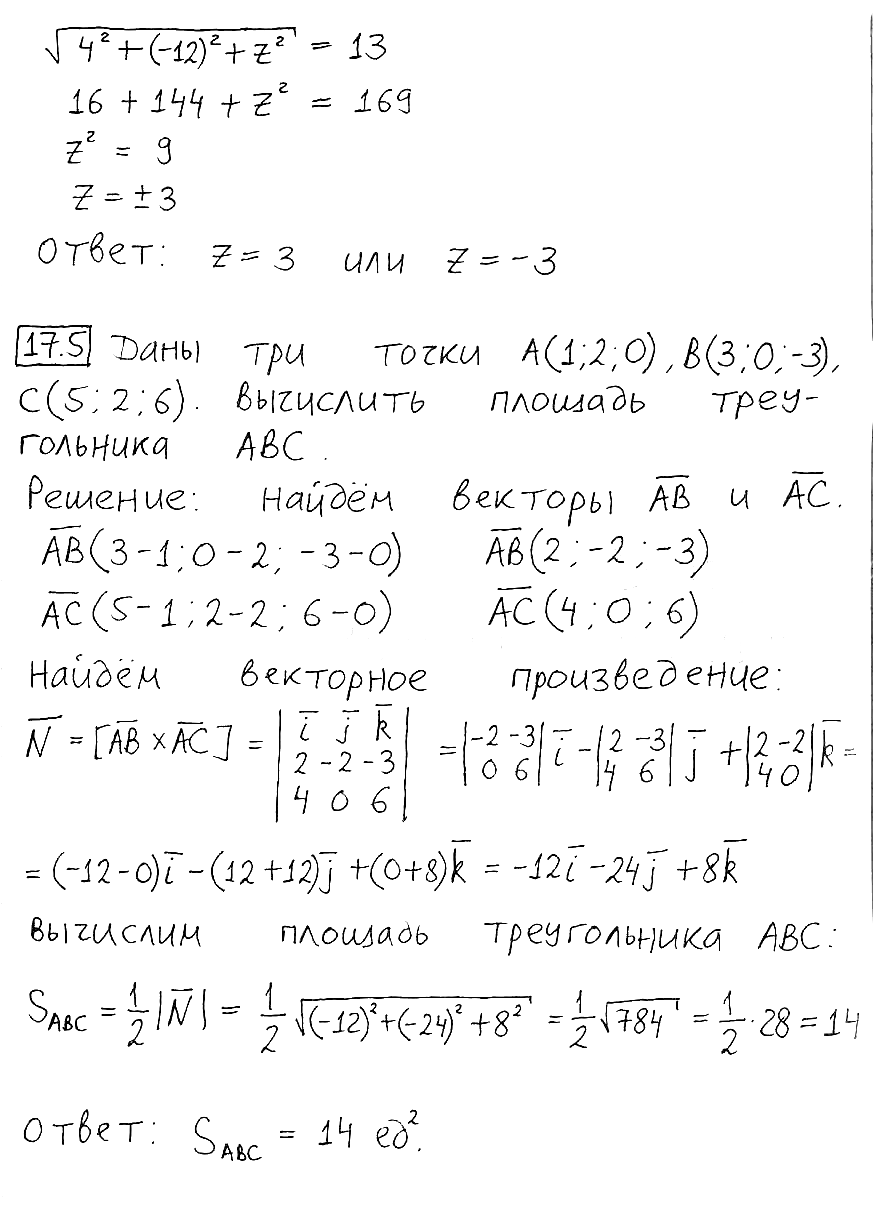 √(4² + (-12)² + z²) = 13
16 + 144 + z² = 169
z² = 9
z = ±3
Ответ: z = 3 или z = -3
17.5 Даны три точки A(1;2;0), B(3;0;-3),
C(5;2;6). Вычислить площадь треу-
гольника ABC.
Решение: Найдём векторы A̅B̅ и A̅C̅.
A̅B̅(3-1;0-2;-3-0) A̅B̅(2;-2;-3)
A̅C̅(5-1;2-2;6-0) A̅C̅(4;0;6)
Найдём векторное произведение:
N̅ = [A̅B̅ × A̅C̅] = |i̅ j̅ k̅; 2 -2 -3; 4 0 6| = |-2 -3; 0 6| i̅ - |2 -3; 4 6| j̅ + |2 -2; 4 0| k̅ =
= (-12-0)i̅ - (12+12)j̅ + (0+8)k̅ = -12i̅ - 24j̅ + 8k̅
Вычислим площадь треугольника ABC:
S_ABC = 1/2 |N̅| = 1/2 √((-12)² + (-24)² + 8²) = 1/2 √784 = 1/2 · 28 = 14
Ответ: S_ABC = 14 ед².